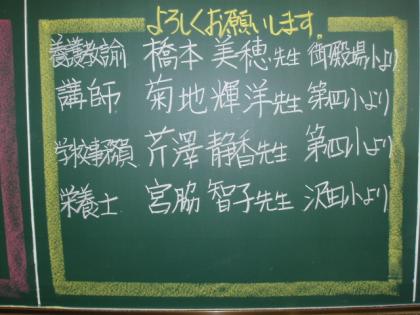 よろしくお願いします。
養護教諭 橋本 美穂先生 御殿場小より
講師 菊地 輝洋先生 第四小より
学校事務員 芹澤 静香先生 第四小より
栄養士 宮脇 智子先生 沢田小より